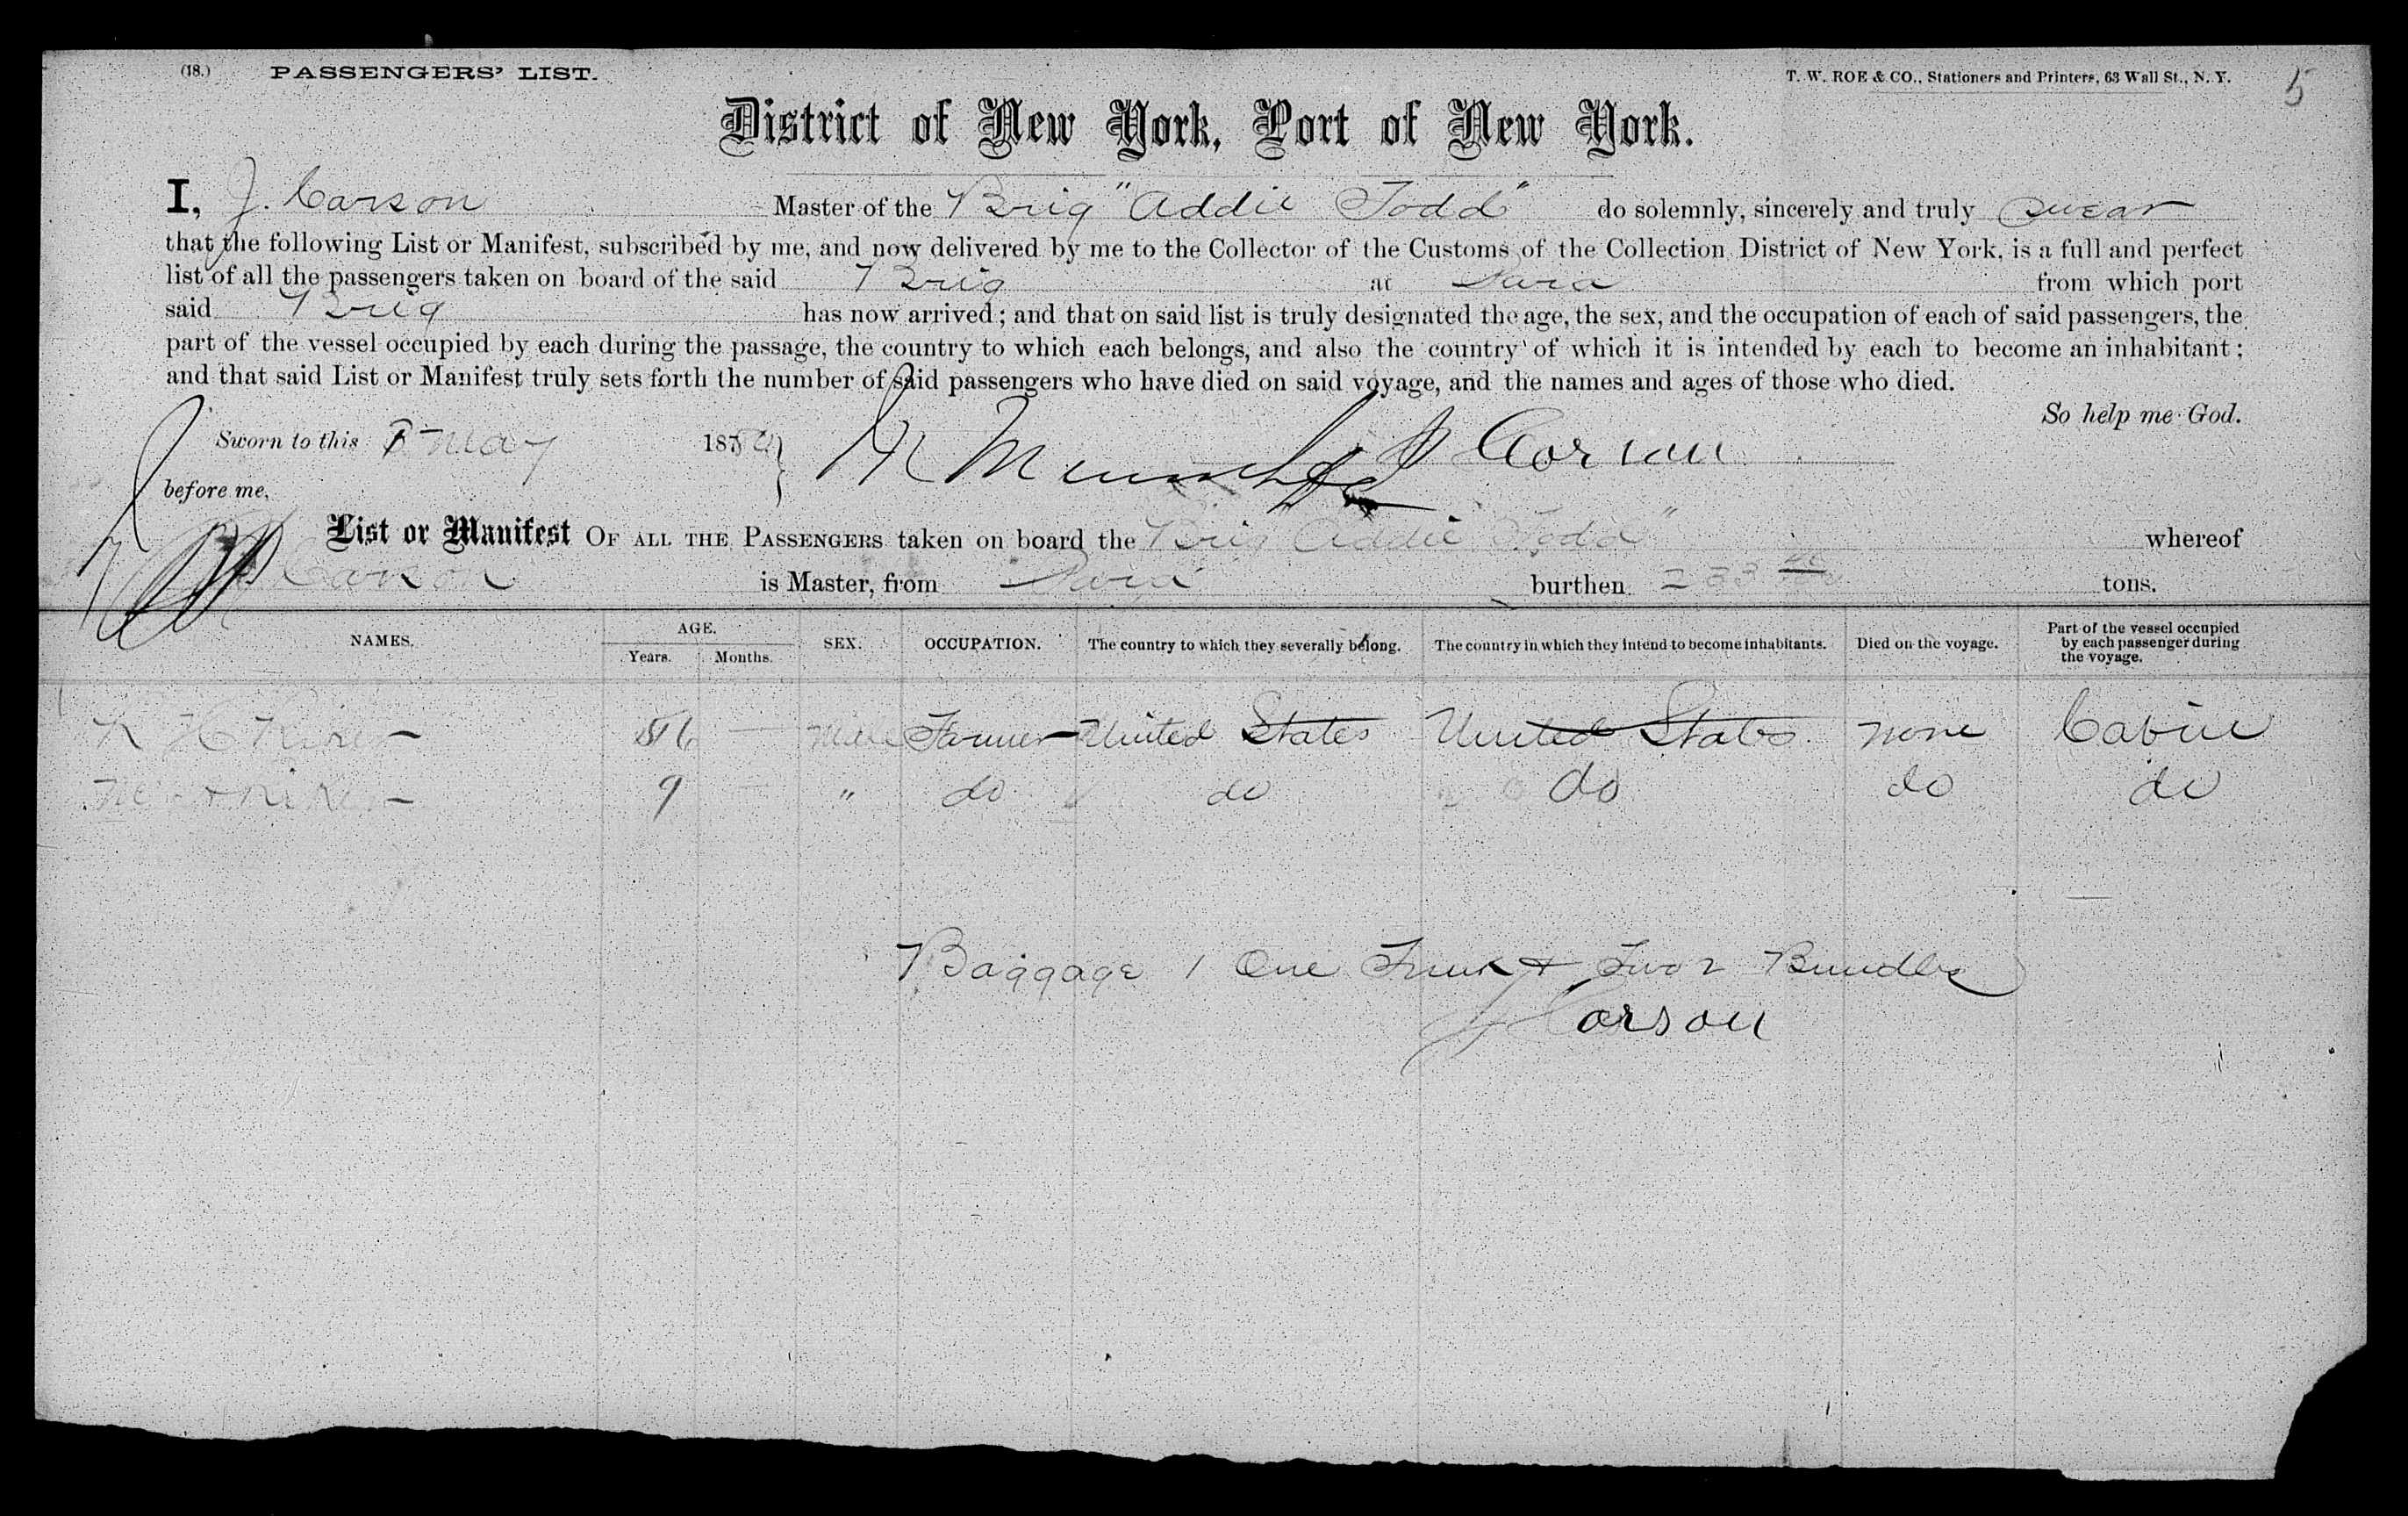 (18.) PASSENGERS' LIST. T. W. ROE & CO., Stationers and Printers, 63 Wall St., N. Y. 5
District of New York, Port of New York.
I, J. Carson Master of the Brig "Addie Todd" do solemnly, sincerely and truly swear
that the following List or Manifest, subscribed by me, and now delivered by me to the Collector of the Customs of the Collection District of New York, is a full and perfect
list of all the passengers taken on board of the said Brig at Para from which port
said Brig has now arrived; and that on said list is truly designated the age, the sex, and the occupation of each of said passengers, the
part of the vessel occupied by each during the passage, the country to which each belongs, and also the country of which it is intended by each to become an inhabitant;
and that said List or Manifest truly sets forth the number of said passengers who have died on said voyage, and the names and ages of those who died.
So help me God.
Sworn to this May 1880 J Corson
before me,
List or Manifest OF ALL THE PASSENGERS taken on board the Brig "Addie Todd" whereof
Carson is Master, from Para burthen 233 tons.
NAMES. AGE. Years. Months. SEX. OCCUPATION. The country to which they severally belong. The country in which they intend to become inhabitants. Died on the voyage. Part of the vessel occupied by each passenger during the voyage.
R H Riker 56 — Male Farmer United States United States none Cabin
Riker 9 — " do do do do do
Baggage 1 One Trunk & Two 2 Bundles
J Corson